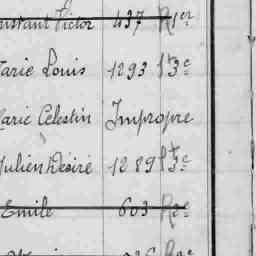 Constant Victor 437 R 1er
Marie Louis 1293 Pt 3e
Marie Celestin Impropre
Julien Désiré 1289 Pt 3e
Emile 603 R 2e